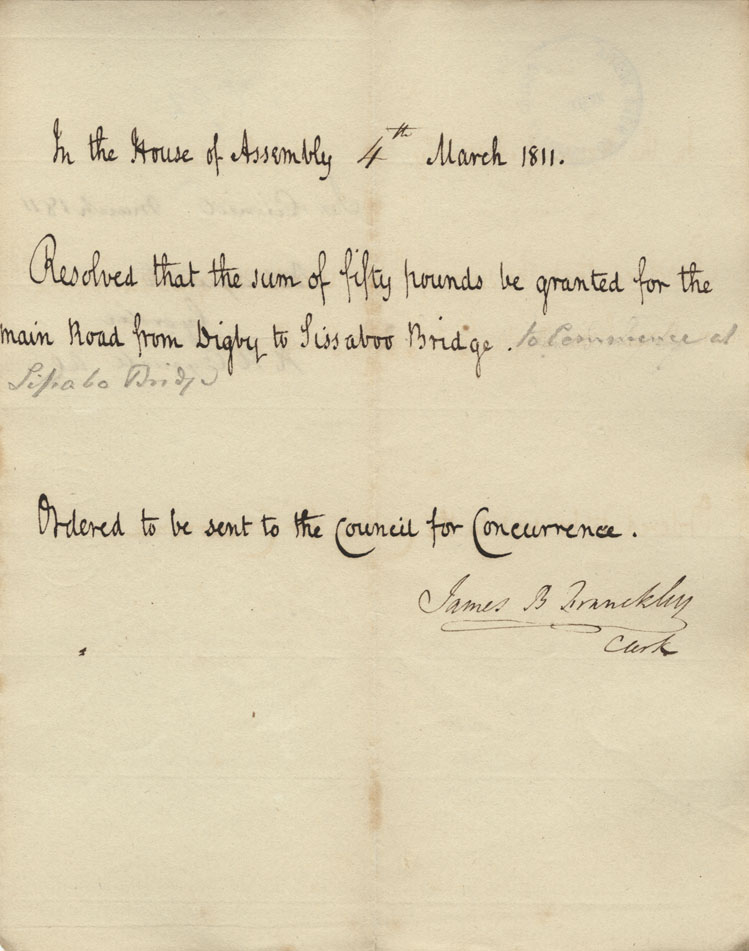 In the House of Assembly 4th March 1811.
Resolved that the sum of fifty pounds be granted for the
main Road from Digby to Sissaboo Bridge. to Commence at
Sissabo Bridge
Ordered to be sent to the Council for Concurrence.
James B Franckley
Clerk